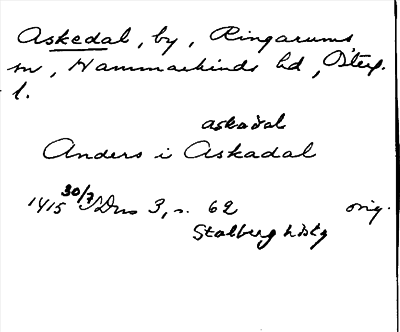 Askedal, by, Ringarums
sn, Hammarkinds hd, Österg.
l.
askadal
Anders i Askadal
1415 30/7 SDns 3, s. 62 orig.
Stålberg hdskg